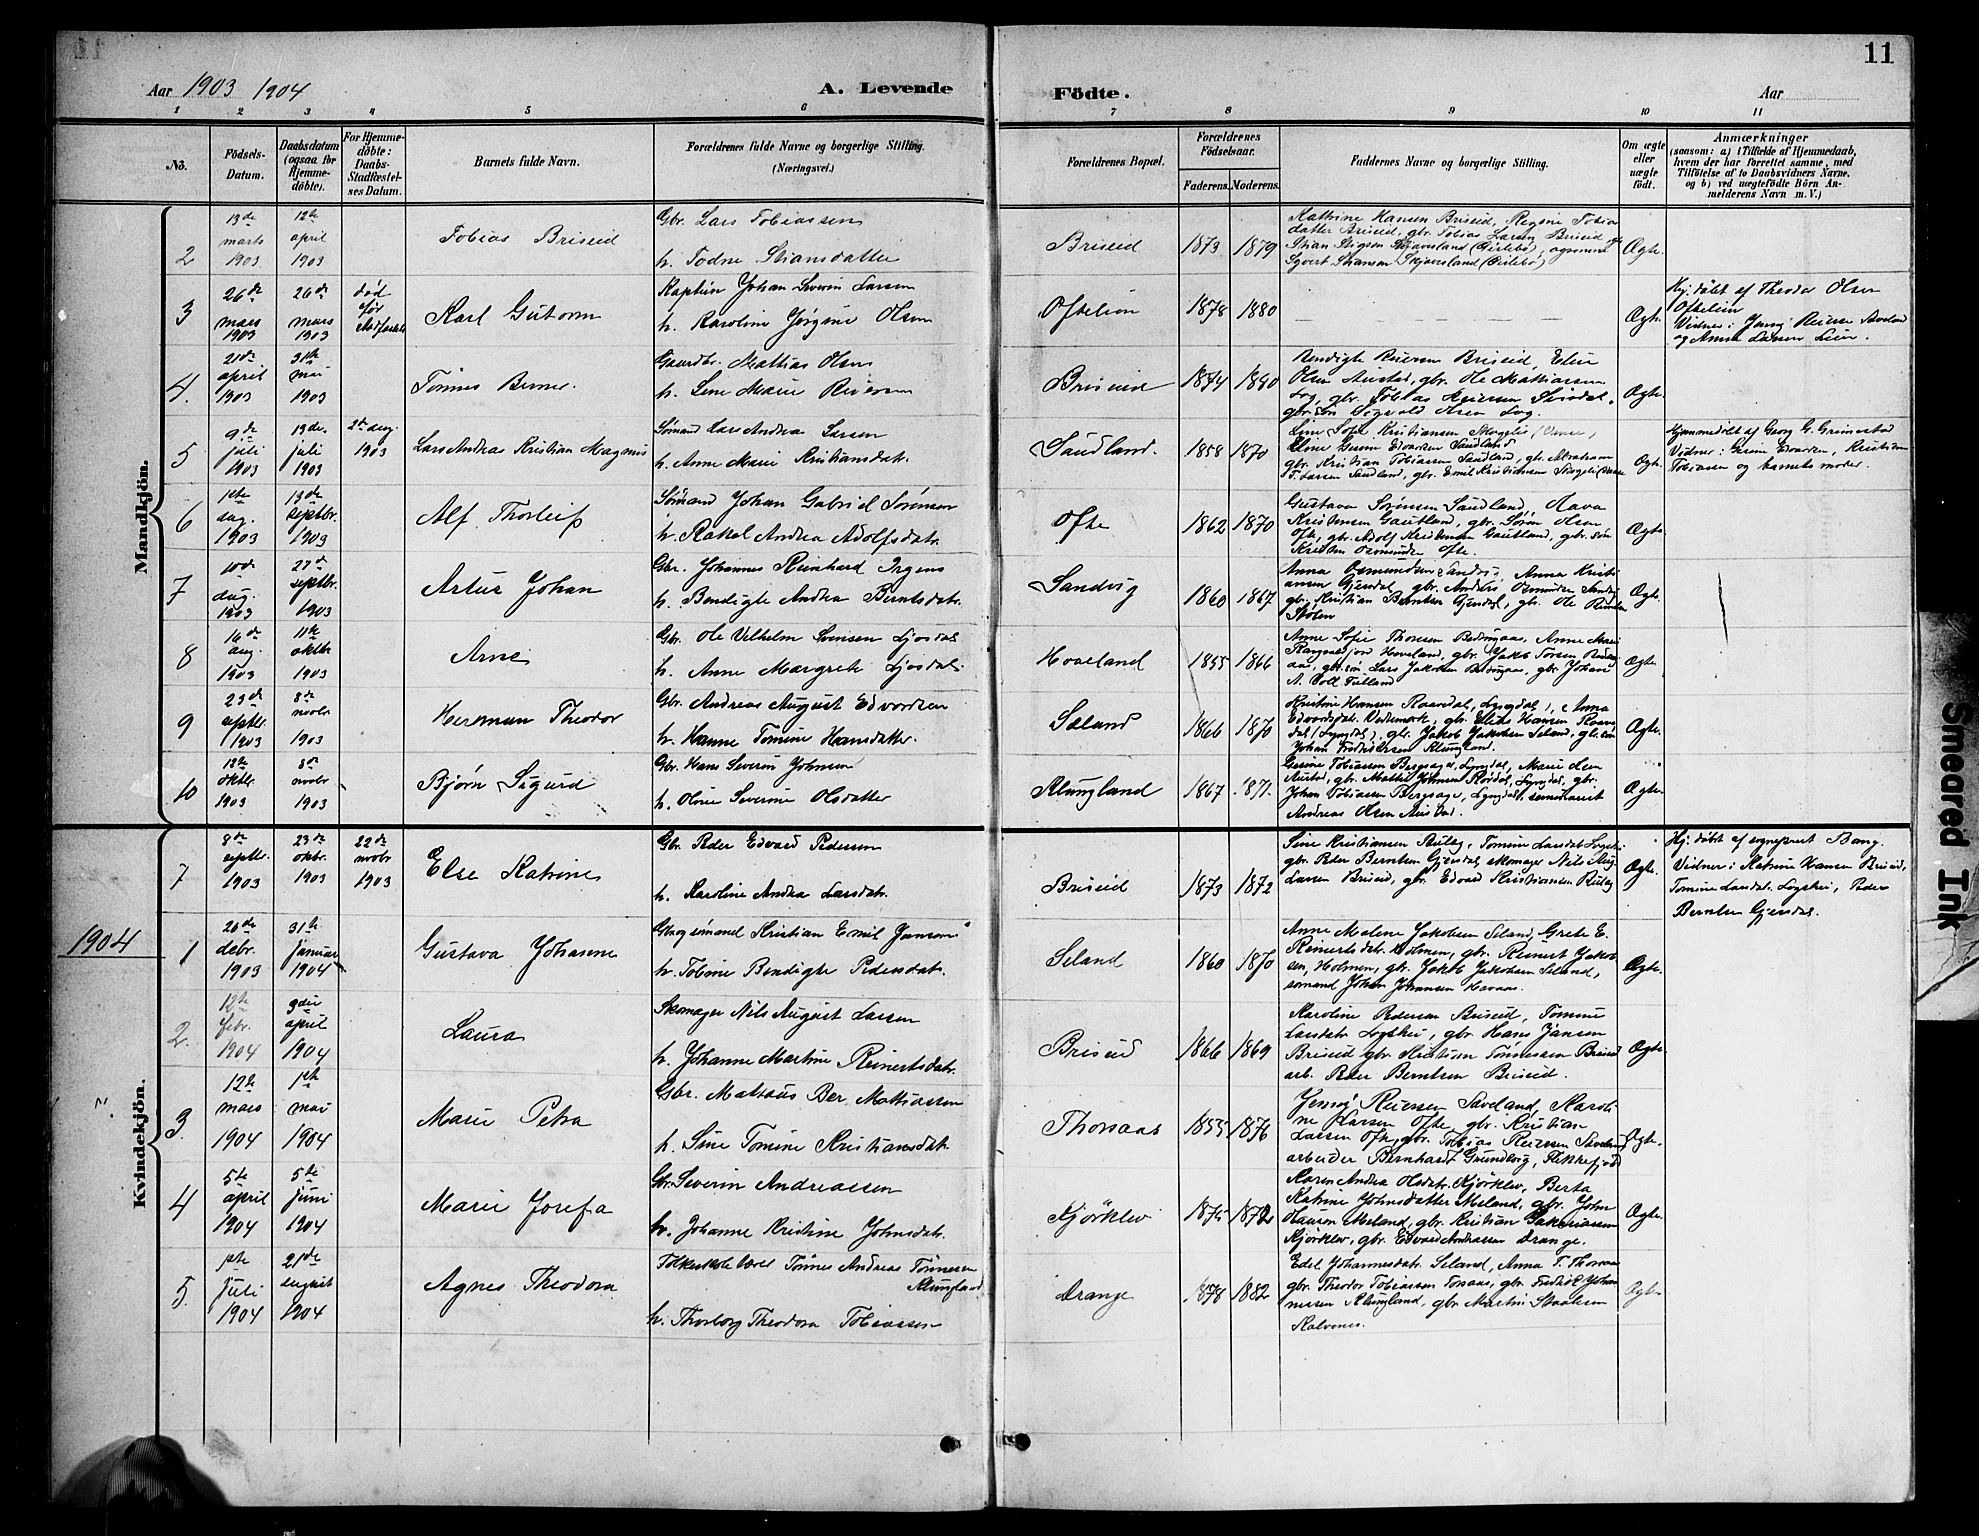 11
Aar 1903 1904
A. Levende
Födte.
Aar
1 2 3 4 5 6 7 8 9 10 11
Nö.
Födsels-
Datum.
Daabsdatum
(ogsaa for
Hjemme-
döbte).
For Hjemme-
döbte:
Daabs-
Stadfæstel-
ses Datum.
Barnets fulde Navn.
Forældrenes fulde Navne og borgerlige Stilling.
(Næringsvei.)
Forældrenes Bopæl.
Forældrenes
Födselsaar.
Faderens.
Moderens.
Faddernes Navne og borgerlige Stilling.
Om ægte
eller
uægte
födt.
Anmærkninger
(saasom: a) i Tilfælde af Hjemmedaab,
hvem der har forrettet samme, med
Tilföielse af to Daabsvidners Navne.
og b) ved uægtefödte Börn An-
melderens Navn m. V.)
Mandkjön.
2
13de
marts
1903
12te
april
1903
Tobias Briseid
Gbr. Lars Tobiassen
h. Todne Stiansdatter
Briseid
1873
1879
Kattrine Hansen Briseid, Regine Tobias
datter Briseid, gbr. Tobias Larsen Briseid
Stian Stigsen Skjævesland (Øislebø),
Syvert Stiansen Skjævesland (Øislebø)
Ægte.
3
26de
mars
1903
26de
mars
1903
død
før
Karl Gutorm
Kaptein Johan Severin Larsen
h. Karoline Jørgine Olsen
Oftelien
1878
1880
Ægte.
Hj. døbt af Theodor Olsen
Oftelien
Vidner: Jenny Reiersen Saveland
og Anna Larsen Leire.
4.
21de
april
1903
31te
mai
1903
Tönnes Berner.
Gaardbr. Mathias Olsen
h. Lene Marie Reiersen
Briseid
1874
1880
Bendigte Reiersen Briseid, Eline
Olsen Austad, gbr. Ole Mattiassen
Log, gbr. Tobias Reiersen
gbr. søn Sigvald Olsen Log.
Ægte.
5
9de
juli
1903
13de
juli
1903
2den aug.
1903
Lars Andreas Kristian Magnus
Sømand Lars Andreas Larsen
h. Anne Marie Kristiansdatr.
Saudland.
1858
1870
Line Sofie Kristiansen Skogeli
Eline Gurine Edvardsen Saudland
gbr. Kristian Tobiassen Saudland, gbr. Abraham
T. Larsen Saudland, gbr. Emil Kristiansen Skogeli
Ægte.
Hjemmedøbt af Georg G. Grimestad
Vidner: Gesine Edvardsen, Kristian
Tobiasen og barnets moder.
6
1ste
aug.
1903
13de
septbr.
1903
Alf Thorleif
Sømand Johan Gabriel Sørensen
h. Rakel Andrea Adolfsdatr.
Ofte
1862
1870
Gustava Sørensen Saudland, Hava
Kristensen Gautland, gbr. Søren Olsen
Ofte, gbr. Adolf Kristensen Gautland, gbr. søn
Kristen Osmundsen Ofte.
Ægte.
7
10de
aug.
1903
27de
septbr.
1903
Artur Johan
Gbr. Johannes Reinhard Irgens
h. Bendigte Andrea Berntsdatr.
Sandvig
1860
1867
Anna Osmundsen Sandvig, Anna Kristi-
ansen Gjersdal, gbr. Anders Osmundsen Sandvig
gbr. Kristian Berntsen Gjersdal, gbr. Ole
Stölen
Ægte.
8
16de
aug.
1903
11te
oktbr.
1903
Arne
Gbr. Ole Vilhelm Svensen Ljosdal
h. Anne Margrete Ljosdal.
Hoveland
1855
1866
Anne Sofie Thorsen Bedringaas, Anne Marie
Hoveland, gbr. Jakob Torsen
gbr. søn Lars Jakobsen Bedringaas, gbr. Johan
A. Voll Tulland
Ægte.
9
23de
septbr.
1903
8de
novbr.
1903
Herman Theodor
Gbr. Andreas August Edvardsen
h. Hanne Tomine Hansdatter.
Sæland
1866
1870
Kristine Hansen Raandal, Lyngdal, Anna
Edvardsdatr. Vedemork, gbr. Elias Hansen Raan-
dal (Lyngdal), gbr. Jakob Jakobsen Seland, gbr. søn
Johan Fredriksen Klungland.
Ægte.
10
12te
oktbr.
1903
8de
novbr.
1903
Bjørn Sigurd
Gbr. Hans Severin Johnsen
h. Oline Severine Olsdatter
Klungland
1867
1871.
Gesine Tobiassen Bergsager, Lyngdal, Marie Olsen
Austad, gbr. Mathis Johnsen Rosdal, Lyngdal, gbr.
Johan Tobiassen Bergsager, Lyngdal, seminarist
Andreas Olsen Austad.
Ægte.
Kvindekjön.
7
8de
septbr.
1903
23de
oktbr.
1903
22de
novbr
1903
Else Katrine
Gbr. Peder Edvard Pedersen
h. Karoline Andrea Larsdatr.
Briseid
1873
1872
Sine Kristiansen Rulag, Tomine Larsdatr. Logskei
gbr. Peder Berntsen Gjersdal, skomager Nils Aug.
Larsen Briseid, gbr. Edvard Kristiansen Rulag
Ægte.
Hj. døbt af sogneprest Bang.
Vidner: Katrine Hansen Briseid,
Tomine Larsdatr. Logskei, Peder
Berntsen Gjersdal.
1904
1
26de
debr.
1903
31te
januar
1904
Gustava Johanne
Gbr. og sømand Kristian Emil Jansen
h. Tobine Bendigte Pedersdatr.
Seland
1860
1870
Anne Malene Jakobsen Seland, Grete E.
Reinertsdatr. Holmen, gbr. Reinert Jakob-
sen, Holmen, gbr. Jakob Jakobsen Seland,
sømand Johan Johansen Havaas.
Ægte.
2.
12te
febr.
1904
3die
april
1904
Laura
Skomager Nils August Larsen
h. Johanne Martine Reinertsdatr.
Briseid
1866
1869
Karoline Pedersen Briseid, Tomine
Larsdatr. Logskei, gbr. Hans Jansen
Briseid gbr. Kristian Tönnessen Briseid
arb. Peder Berntsen Briseid.
Ægte
3.
12te
mars
1904
1ste
mai
1904
Marie Petra
Gbr. Mattæus Ber. Mattiassen
h. Sine Tomine Kristiansdatr.
Thorsaas
1855
1876
Jenny Reiersen Saveland, Karoli-
ne Larsen Ofte, gbr. Kristian
Larsen Ofte, gbr. Tobias Reiersen Saveland
arbeider Bernhardt Grundvig, Flekkefjord
Ægte.
4
5te
april
1904
5te
juni
1904
Marie Josefa
Gbr. Severin Andreassen
h. Johanne Kristine Johnsdatr.
Kjörklev
1875
1872
Karen Andrea Olsdatr. Kjörklev, Berta
Katrine Johnsdatter Meland, gbr. John
Hanson Meland, gbr. Kristian Zakariassen
Kjörklev, gbr. Edvard Andreassen Drange.
Ægte.
5.
1ste
juli
1904
21de
august
1904
Agnes Theodora
Folkeskolelærer Tönnes Andreas Tönnesen
Klungland
h. Thorborg Theodora Tobiassen
Drange
1878
1882
Edel Johannesdatr. Seland, Anna T. Thorsaas
gbr. Theodor Tobiassen Torsaas, gbr. Fredrik Johan-
nessen Klungland, gbr. Martin Staalesen
Kalvenes.
Ægte
Smeared Ink